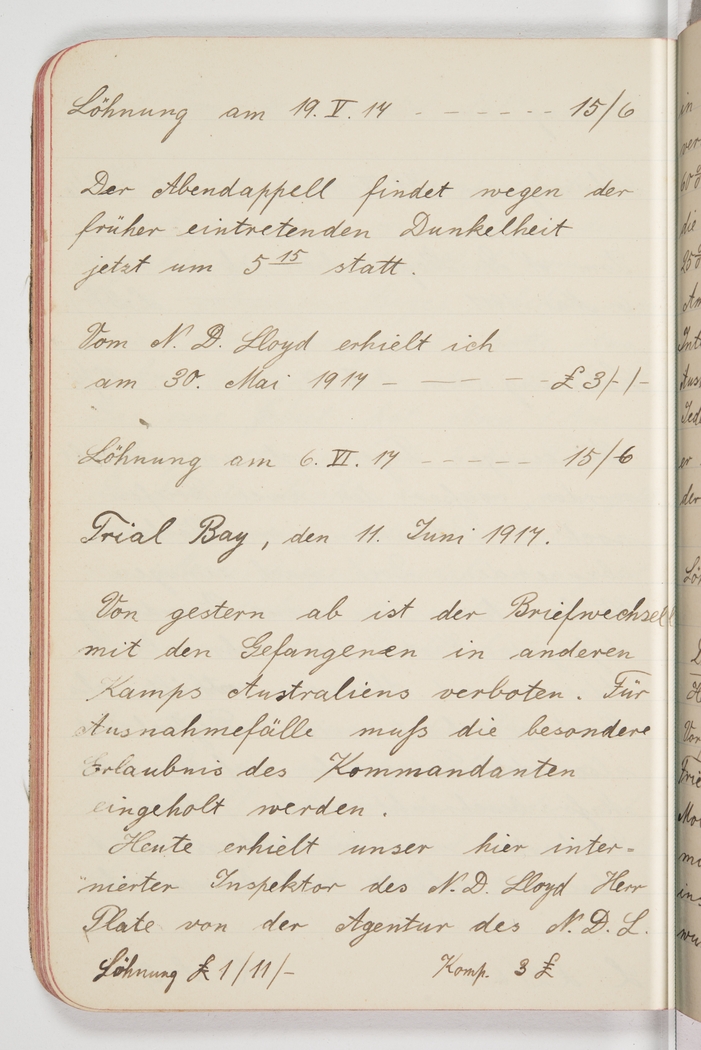 Löhnung am 19. V. 17 - - - - - - 15/6
Der Abendappell findet wegen der
früher eintretenden Dunkelheit
jetzt um 5 15 statt.
Vom N. D. Lloyd erhielt ich
am 30. Mai 1917 - - - - - £ 3/-/-
Löhnung am 6. VI. 17 - - - - - 15/6
Trial Bay, den 11. Juni 1917.
Von gestern ab ist der Briefwechsell
mit den Gefangenen in anderen
Kamps Australiens verboten. Für
Ausnahmefälle muß die besondere
Erlaubnis des Kommandanten
eingeholt werden.
Heute erhielt unser hier inter=
nierter Inspektor des N. D. Lloyd Herr
Plate von der Agentur des N. D. L.
Löhnung £ 1/11/- Komp. 3 £